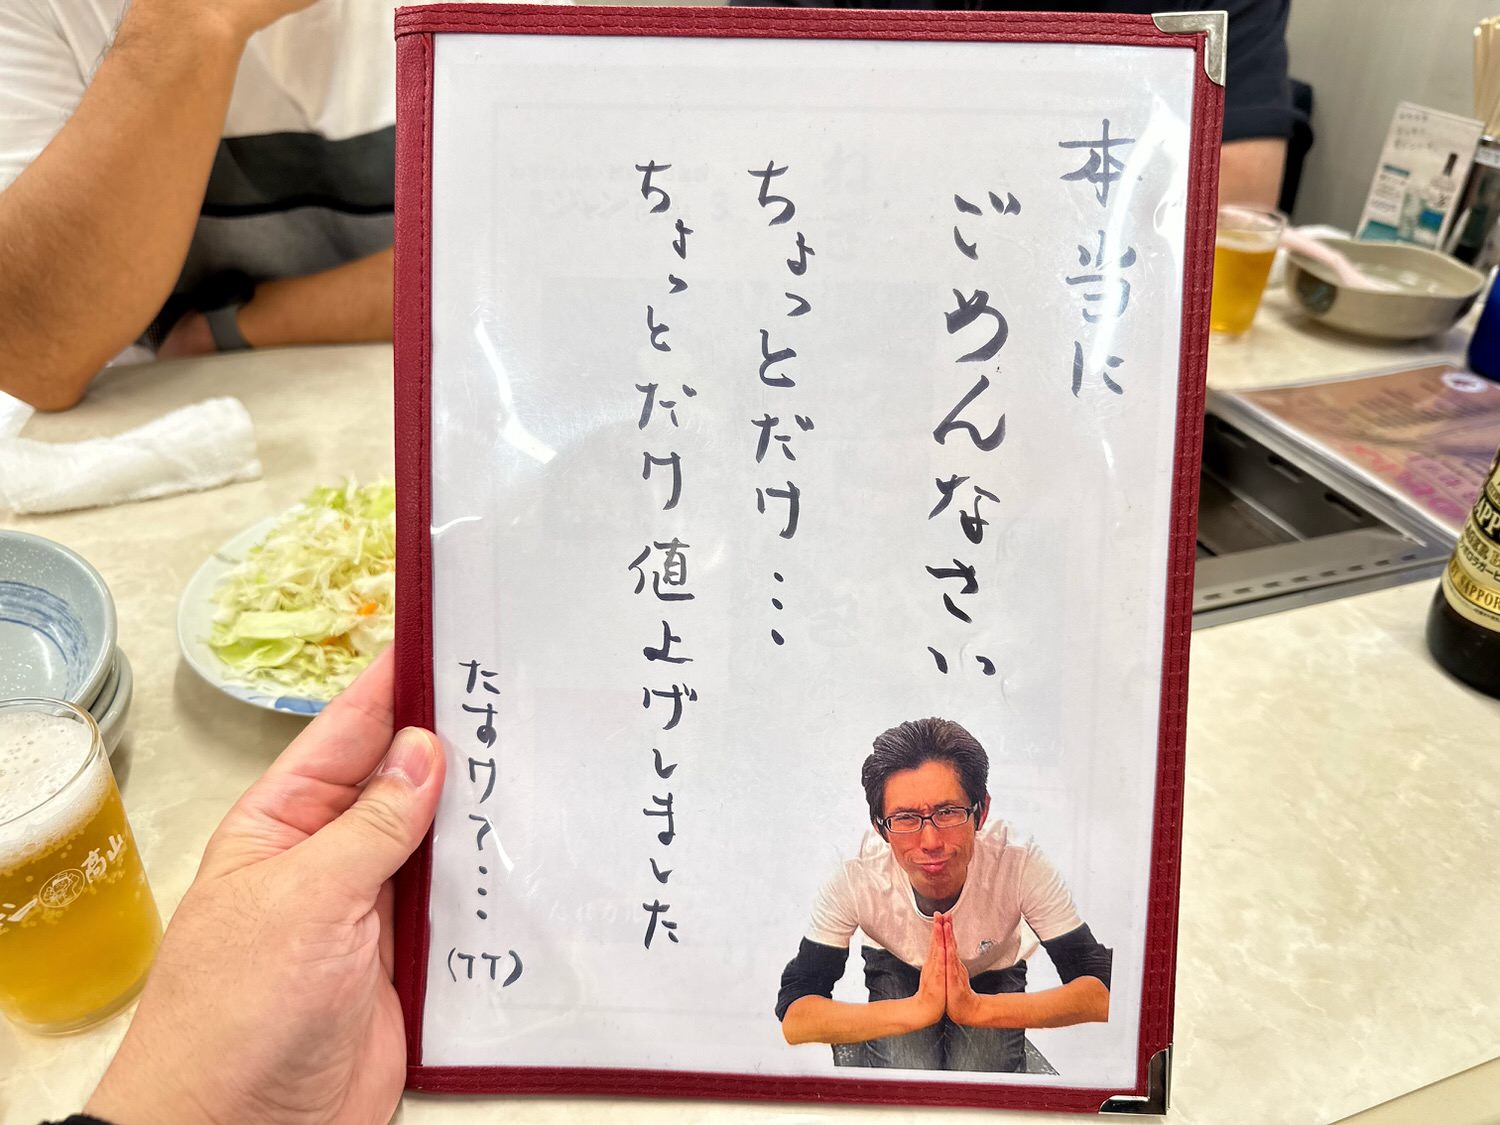 本当に
ごめんなさい
ちょっとだけ…
ちょっとだけ値上げしました
たすケテ…
(TT)
高山
SAPPOR